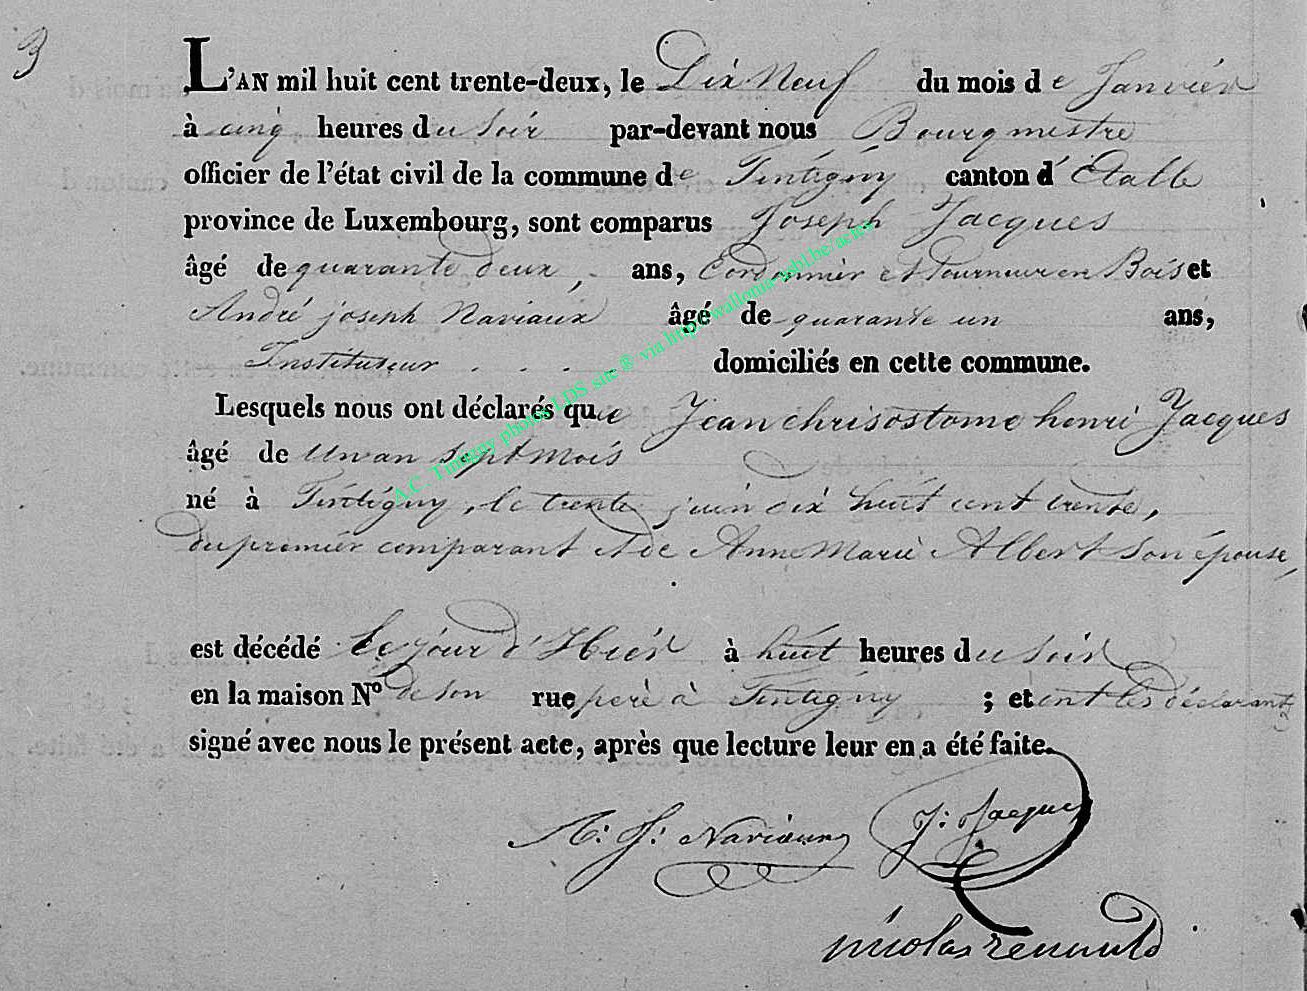 3
L'AN mil huit cent trente-deux, le Dix Neuf du mois de Janvier
à cinq heures du soir par-devant nous Bourgmestre
officier de l'état civil de la commune de Tintigny canton d'Etalle
province de Luxembourg, sont comparus Joseph Jacques
âgé de quarante deux, ans, Cordonnier et Tourneur en Bois et
André joseph Naviaux âgé de quarante un ans,
Instituteur . . . . domiciliés en cette commune.
Lesquels nous ont déclarés que Jean chrisostome henri Jacques
âgé de un an sept mois
né à Tintigny, le trente juin dix huit cent trente,
du premier comparant et de Anne Marie Albert son épouse,
est décédé le jour d'Hier à huit heures du soir
en la maison N° de son rue pere à Tintigny ; et ont les déclarants
signé avec nous le présent acte, après que lecture leur en a été faite.
A: J: Naviaux J: Jacques
nicolas
A.C. Tintigny photos LDS site ® via http://wallonia-asbl.be/actes